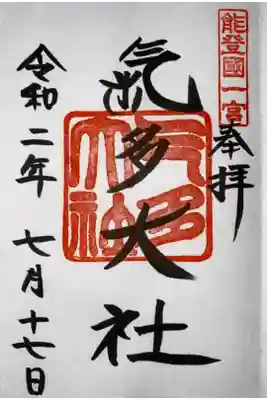 能登國一宮
奉拝
氣多大社
氣多大社
令和二年七月十七日